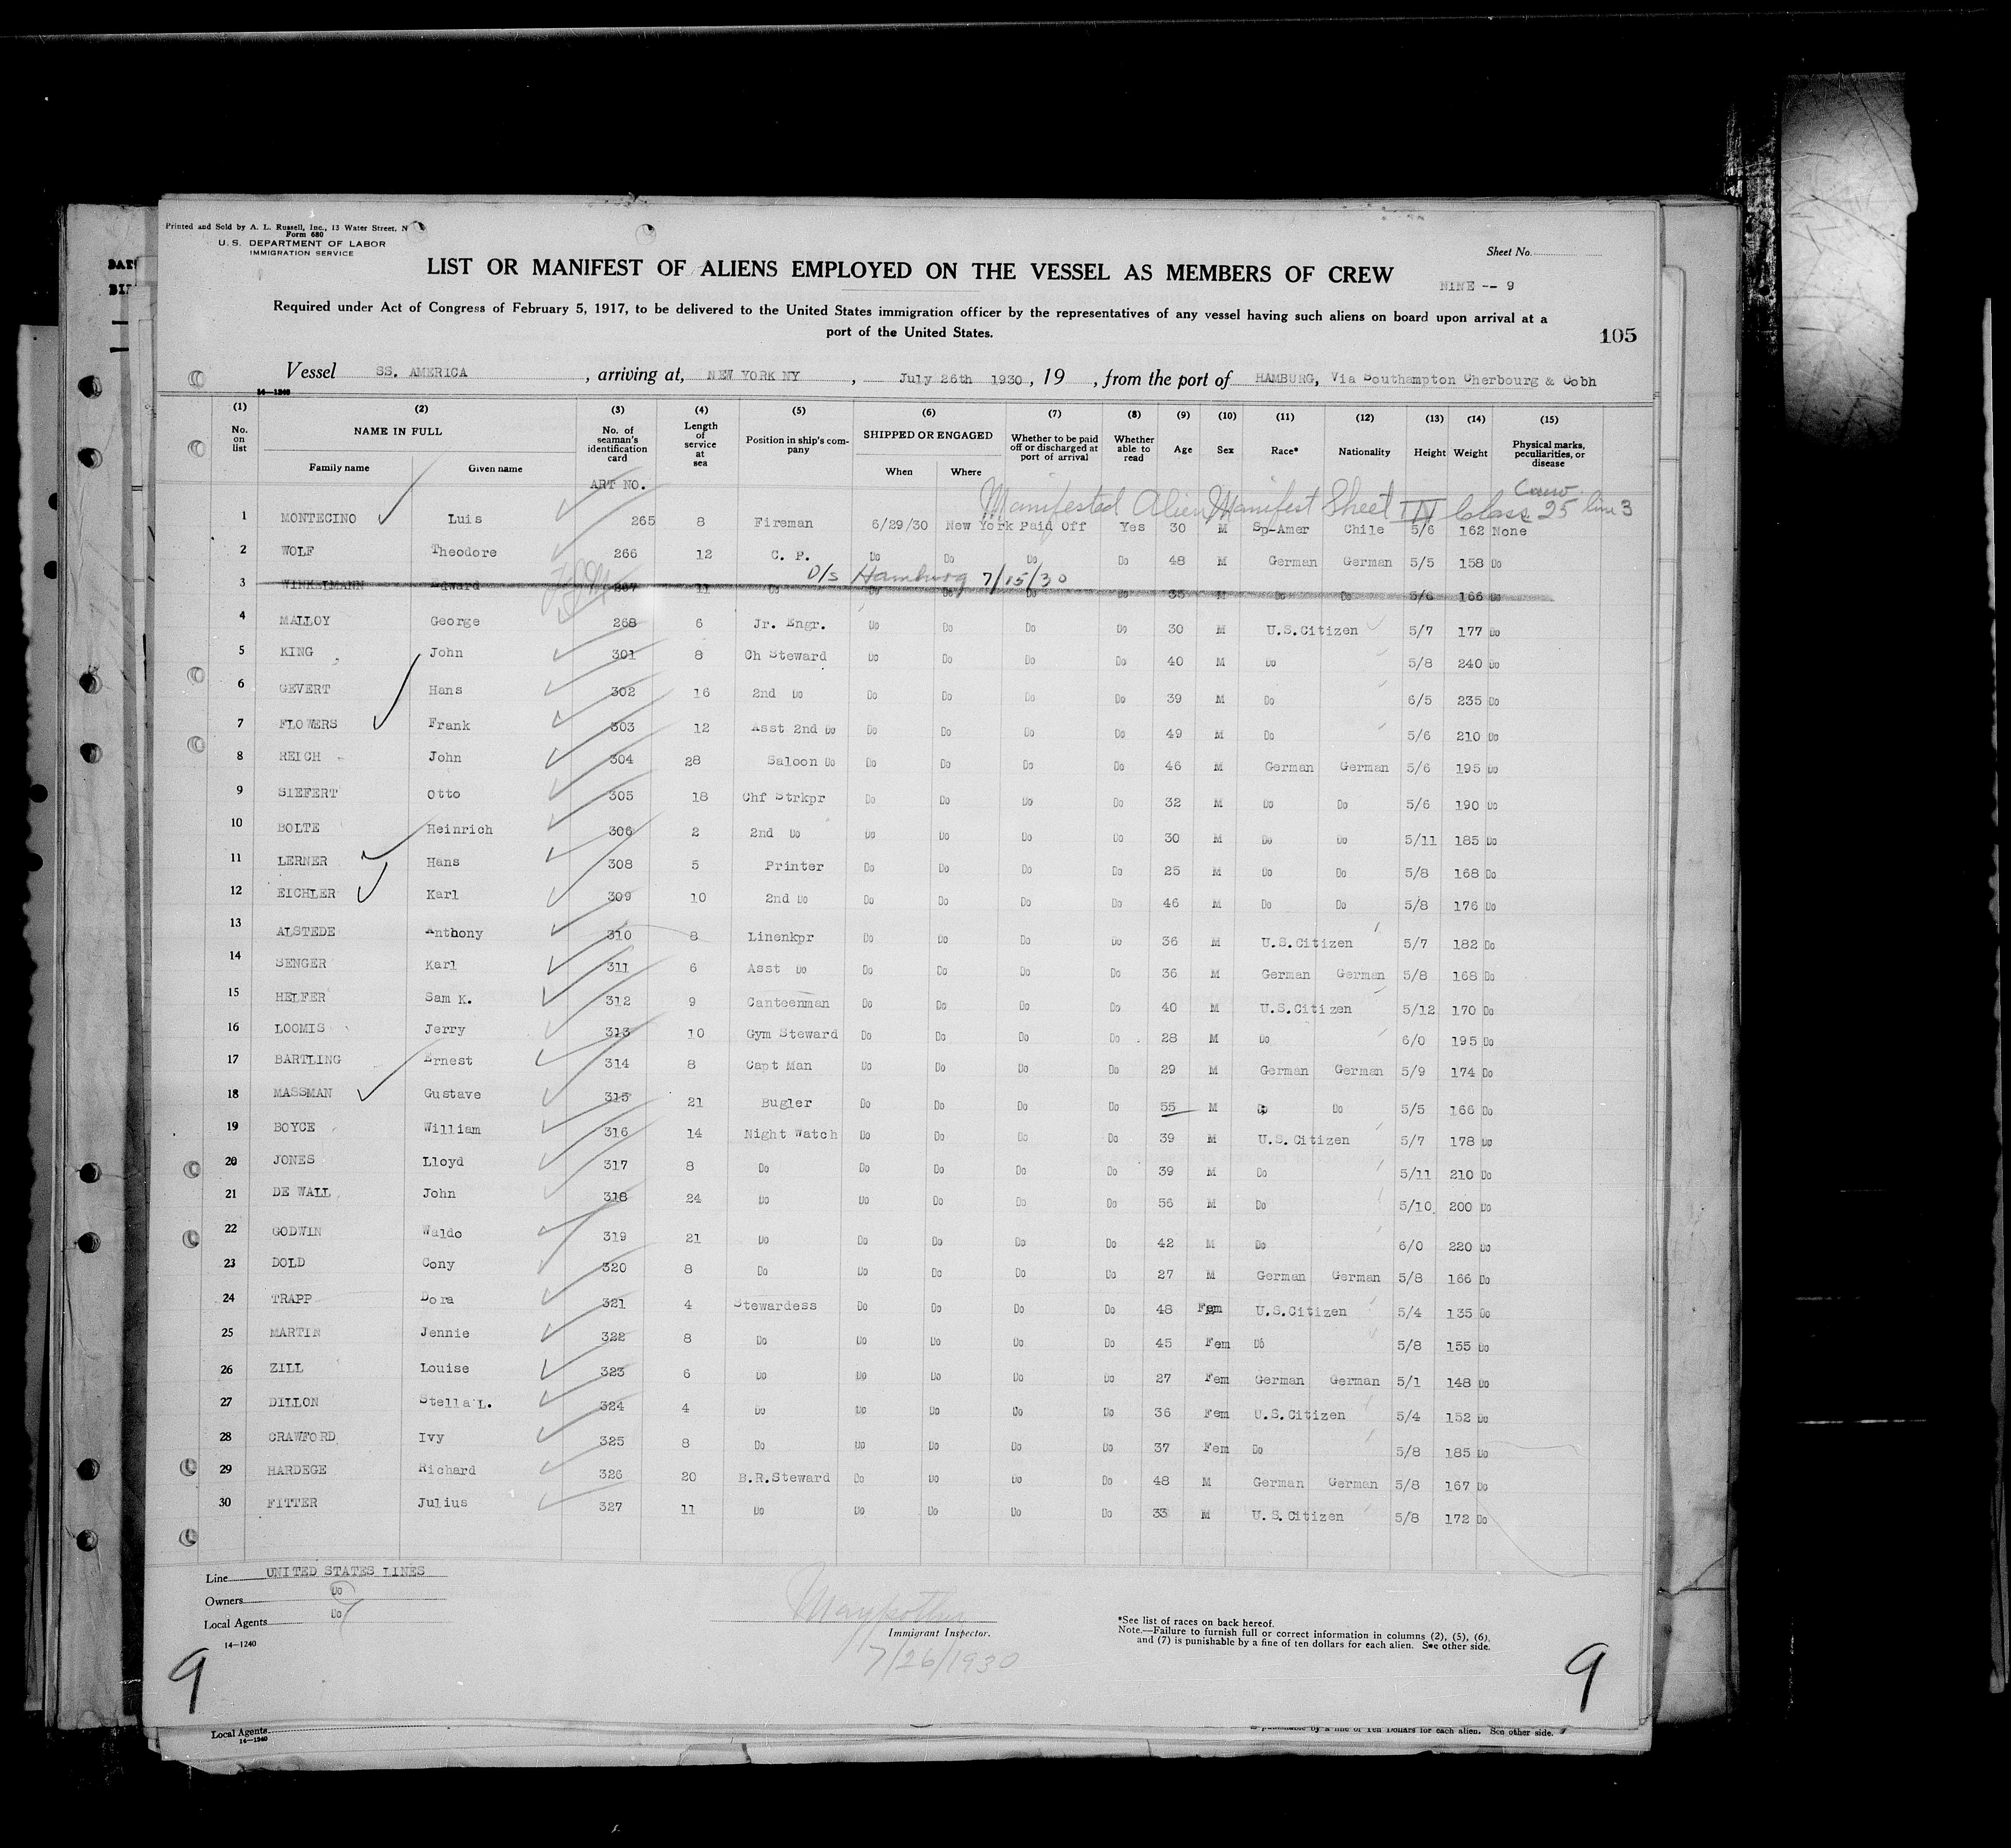 Printed and Sold by A. L. Russell, Inc., 13 Water Street, N
Form 680
U. S. DEPARTMENT OF LABOR
IMMIGRATION SERVICE
Sheet No.
LIST OR MANIFEST OF ALIENS EMPLOYED ON THE VESSEL AS MEMBERS OF CREW
NINE -- 9
Required under Act of Congress of February 5, 1917, to be delivered to the United States immigration officer by the representatives of any vessel having such aliens on board upon arrival at a
port of the United States.
105
Vessel SS. AMERICA , arriving at, NEW YORK NY , July 26th 1930 , 19 , from the port of HAMBURG, Via Southampton Cherbourg & Cobh
14—1240
(1) (2) (3) (4) (5) (6) (7) (8) (9) (10) (11) (12) (13) (14) (15)
No. on list NAME IN FULL Family name Given name No. of seaman's identification card Length of service at sea Position in ship's company SHIPPED OR ENGAGED When Where Whether to be paid off or discharged at port of arrival Whether able to read Age Sex Race* Nationality Height Weight Physical marks, peculiarities, or disease
ART NO.
Crew
Manifested Alien Manifest Sheet IN Class 25 line 3
1 MONTECINO Luis 265 8 Fireman 6/29/30 New York Paid Off Yes 30 M Sp-Amer Chile 5/6 162 None
2 WOLF Theodore 266 12 C. P. Do Do Do Do 48 M German German 5/5 158 Do
D/s Hamburg 7/15/30
3 WINKELMANN Edward 267 11 Do Do Do Do Do 35 M Do Do 5/6 166 Do
4 MALLOY George 268 6 Jr. Engr. Do Do Do Do 30 M U.S.Citizen 5/7 177 Do
5 KING John 301 8 Ch Steward Do Do Do Do 40 M Do 5/8 240 Do
6 GEVERT Hans 302 16 2nd Do Do Do Do Do 39 M Do 6/5 235 Do
7 FLOWERS Frank 303 12 Asst 2nd Do Do Do Do Do 49 M Do 5/6 210 Do
8 REICH John 304 28 Saloon Do Do Do Do Do 46 M German German 5/6 195 Do
9 SIEFERT Otto 305 18 Chf Strkpr Do Do Do Do 32 M Do Do 5/6 190 Do
10 BOLTE Heinrich 306 2 2nd Do Do Do Do Do 30 M Do Do 5/11 185 Do
11 LERNER Hans 308 5 Printer Do Do Do Do 25 M Do Do 5/8 168 Do
12 EICHLER Karl 309 10 2nd Do Do Do Do Do 46 M Do Do 5/8 176 Do
13 ALSTEDE Anthony 310 8 Linenkpr Do Do Do Do 36 M U.S.Citizen 5/7 182 Do
14 SENGER Karl 311 6 Asst Do Do Do Do Do 36 M German German 5/8 168 Do
15 HELFER Sam K. 312 9 Canteenman Do Do Do Do 40 M U.S.Citizen 5/12 170 Do
16 LOOMIS Jerry 313 10 Gym Steward Do Do Do Do 28 M Do 6/0 195 Do
17 BARTLING Ernest 314 8 Capt Man Do Do Do Do 29 M German German 5/9 174 Do
18 MASSMAN Gustave 315 21 Bugler Do Do Do Do 55 M Do Do 5/5 166 Do
19 BOYCE William 316 14 Night Watch Do Do Do Do 39 M U.S.Citizen 5/7 178 Do
20 JONES Lloyd 317 8 Do Do Do Do Do 39 M Do 5/11 210 Do
21 DE WALL John 318 24 Do Do Do Do Do 56 M Do 5/10 200 Do
22 GODWIN Waldo 319 21 Do Do Do Do Do 42 M Do 6/0 220 Do
23 DOLD Cony 320 8 Do Do Do Do Do 27 M German German 5/8 166 Do
24 TRAPP Dora 321 4 Stewardess Do Do Do Do 48 Fem U.S.Citizen 5/4 135 Do
25 MARTIN Jennie 322 8 Do Do Do Do Do 45 Fem Do 5/8 155 Do
26 ZILL Louise 323 6 Do Do Do Do Do 27 Fem German German 5/1 148 Do
27 DILLON Stella L. 324 4 Do Do Do Do Do 36 Fem U.S.Citizen 5/4 152 Do
28 CRAWFORD Ivy 325 8 Do Do Do Do Do 37 Fem Do 5/8 185 Do
29 HARDEGE Richard 326 20 B.R.Steward Do Do Do Do 48 M German German 5/8 167 Do
30 FITTER Julius 327 11 Do Do Do Do Do 33 M U.S.Citizen 5/8 172 Do
Line UNITED STATES LINES
Owners Do
Local Agents Do
14—1240
Immigrant Inspector.
7/26/1930
*See list of races on back hereof.
Note.—Failure to furnish full or correct information in columns (2), (5), (6),
and (7) is punishable by a fine of ten dollars for each alien. See other side.
9 9
Local Agents
14—1240
is punishable by a fine of Ten Dollars for each alien. See other side.